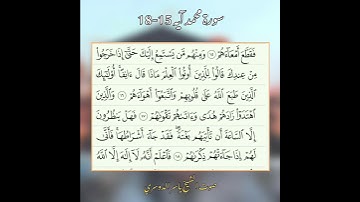 سورة محمد آية 15-18
فَقَطَّعَ أَمْعَآءَهُمْ ١٥ وَمِنْهُم مَّن يَسْتَمِعُ إِلَيْكَ حَتَّىٰٓ إِذَا خَرَجُوا۟
مِنْ عِندِكَ قَالُوا۟ لِلَّذِينَ أُوتُوا۟ ٱلْعِلْمَ مَاذَا قَالَ ءَانِفًا أُو۟لَٰٓئِكَ
ٱلَّذِينَ طَبَعَ ٱللَّهُ عَلَىٰ قُلُوبِهِمْ وَٱتَّبَعُوٓا۟ أَهْوَآءَهُمْ ١٦ وَٱلَّذِينَ
ٱهْتَدَوْا۟ زَادَهُمْ هُدًى وَءَاتَىٰهُمْ تَقْوَىٰهُمْ ١٧ فَهَلْ يَنظُرُونَ
إِلَّا ٱلسَّاعَةَ أَن تَأْتِيَهُم بَغْتَةً فَقَدْ جَآءَ أَشْرَاطُهَا فَأَنَّىٰ
لَهُمْ إِذَا جَآءَتْهُمْ ذِكْرَىٰهُمْ ١٨ فَٱعْلَمْ أَنَّهُۥ لَآ إِلَٰهَ إِلَّا ٱللَّهُ
صوت الشيخ ياسر الدوسري